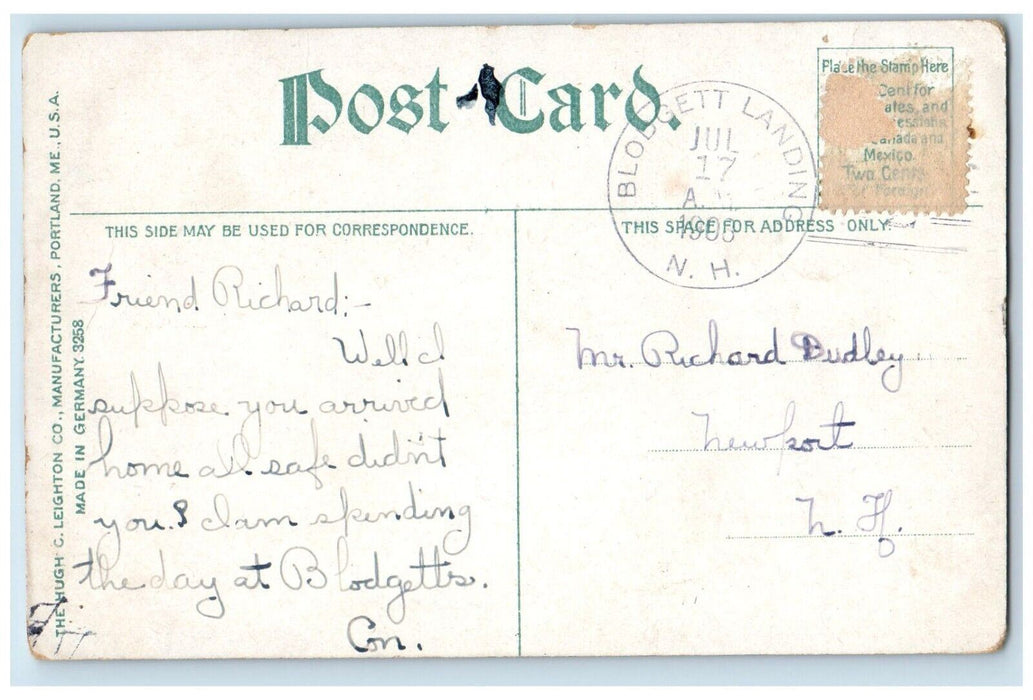 Post Card.
Place the Stamp Here
Cent for
ates, and
essions
Canada and
Mexico.
Two Cents
Foreign
BLODGETT LANDING
JUL
17
A.
N. H.
THIS SIDE MAY BE USED FOR CORRESPONDENCE.
THIS SPACE FOR ADDRESS ONLY.
THE HUGH C. LEIGHTON CO., MANUFACTURERS, PORTLAND, ME., U.S.A.
MADE IN GERMANY. 3258
Friend Richard:-
Well I
suppose you arrived
home all safe didn't
you? I am spending
the day at Blodgetts.
Con.
Mr. Richard Dudley
Newport
N. H.